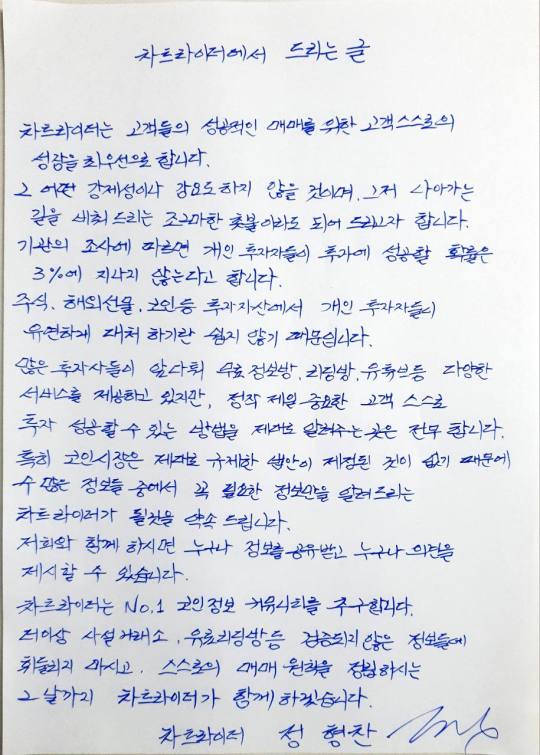 차트라이더에서 드리는 글
차트라이더는 고객들의 성공적인 매매를 위한 고객스스로의
성장을 최우선으로 합니다.
그 어떤 강제성이나 강요도하지 않을 것이며, 그저 나아가는
길을 비춰 드리는 조그마한 촛불이라도 되어 드리고자 합니다.
기관의 조사에 따르면 개인 투자자들이 투자에 성공할 확률은
3%에 지나지 않는다고 합니다.
주식, 해외선물, 코인등 투자자산에서 개인 투자자들이
유연하게 대처 하기란 쉽지 않기 때문입니다.
많은 투자사들이 앞다퉈 무료 정보방, 리딩방, 유튜브등 다양한
서비스를 제공하고 있지만, 정작 제일 중요한 고객 스스로
투자 성공할 수 있는 방법을 제대로 알려주는 곳은 전무 합니다.
특히 코인시장은 제대로 규제한 법안이 제정된 것이 없기 때문에
수 많은 정보들 중에서 꼭 필요한 정보만을 알려드리는
차트라이더가 될것을 약속 드립니다.
저희와 함께 하시면 누구나 정보를 공유받고 누구나 의견을
제시할 수 있습니다.
차트라이더는 No.1 코인정보 커뮤니티를 추구합니다.
더이상 사설거래소, 유료리딩방등 검증되지 않은 정보들에
휘둘리지 마시고, 스스로의 매매 원칙을 정립하시는
그 날까지 차트라이더가 함께 하겠습니다.
차트라이더 정 형찬